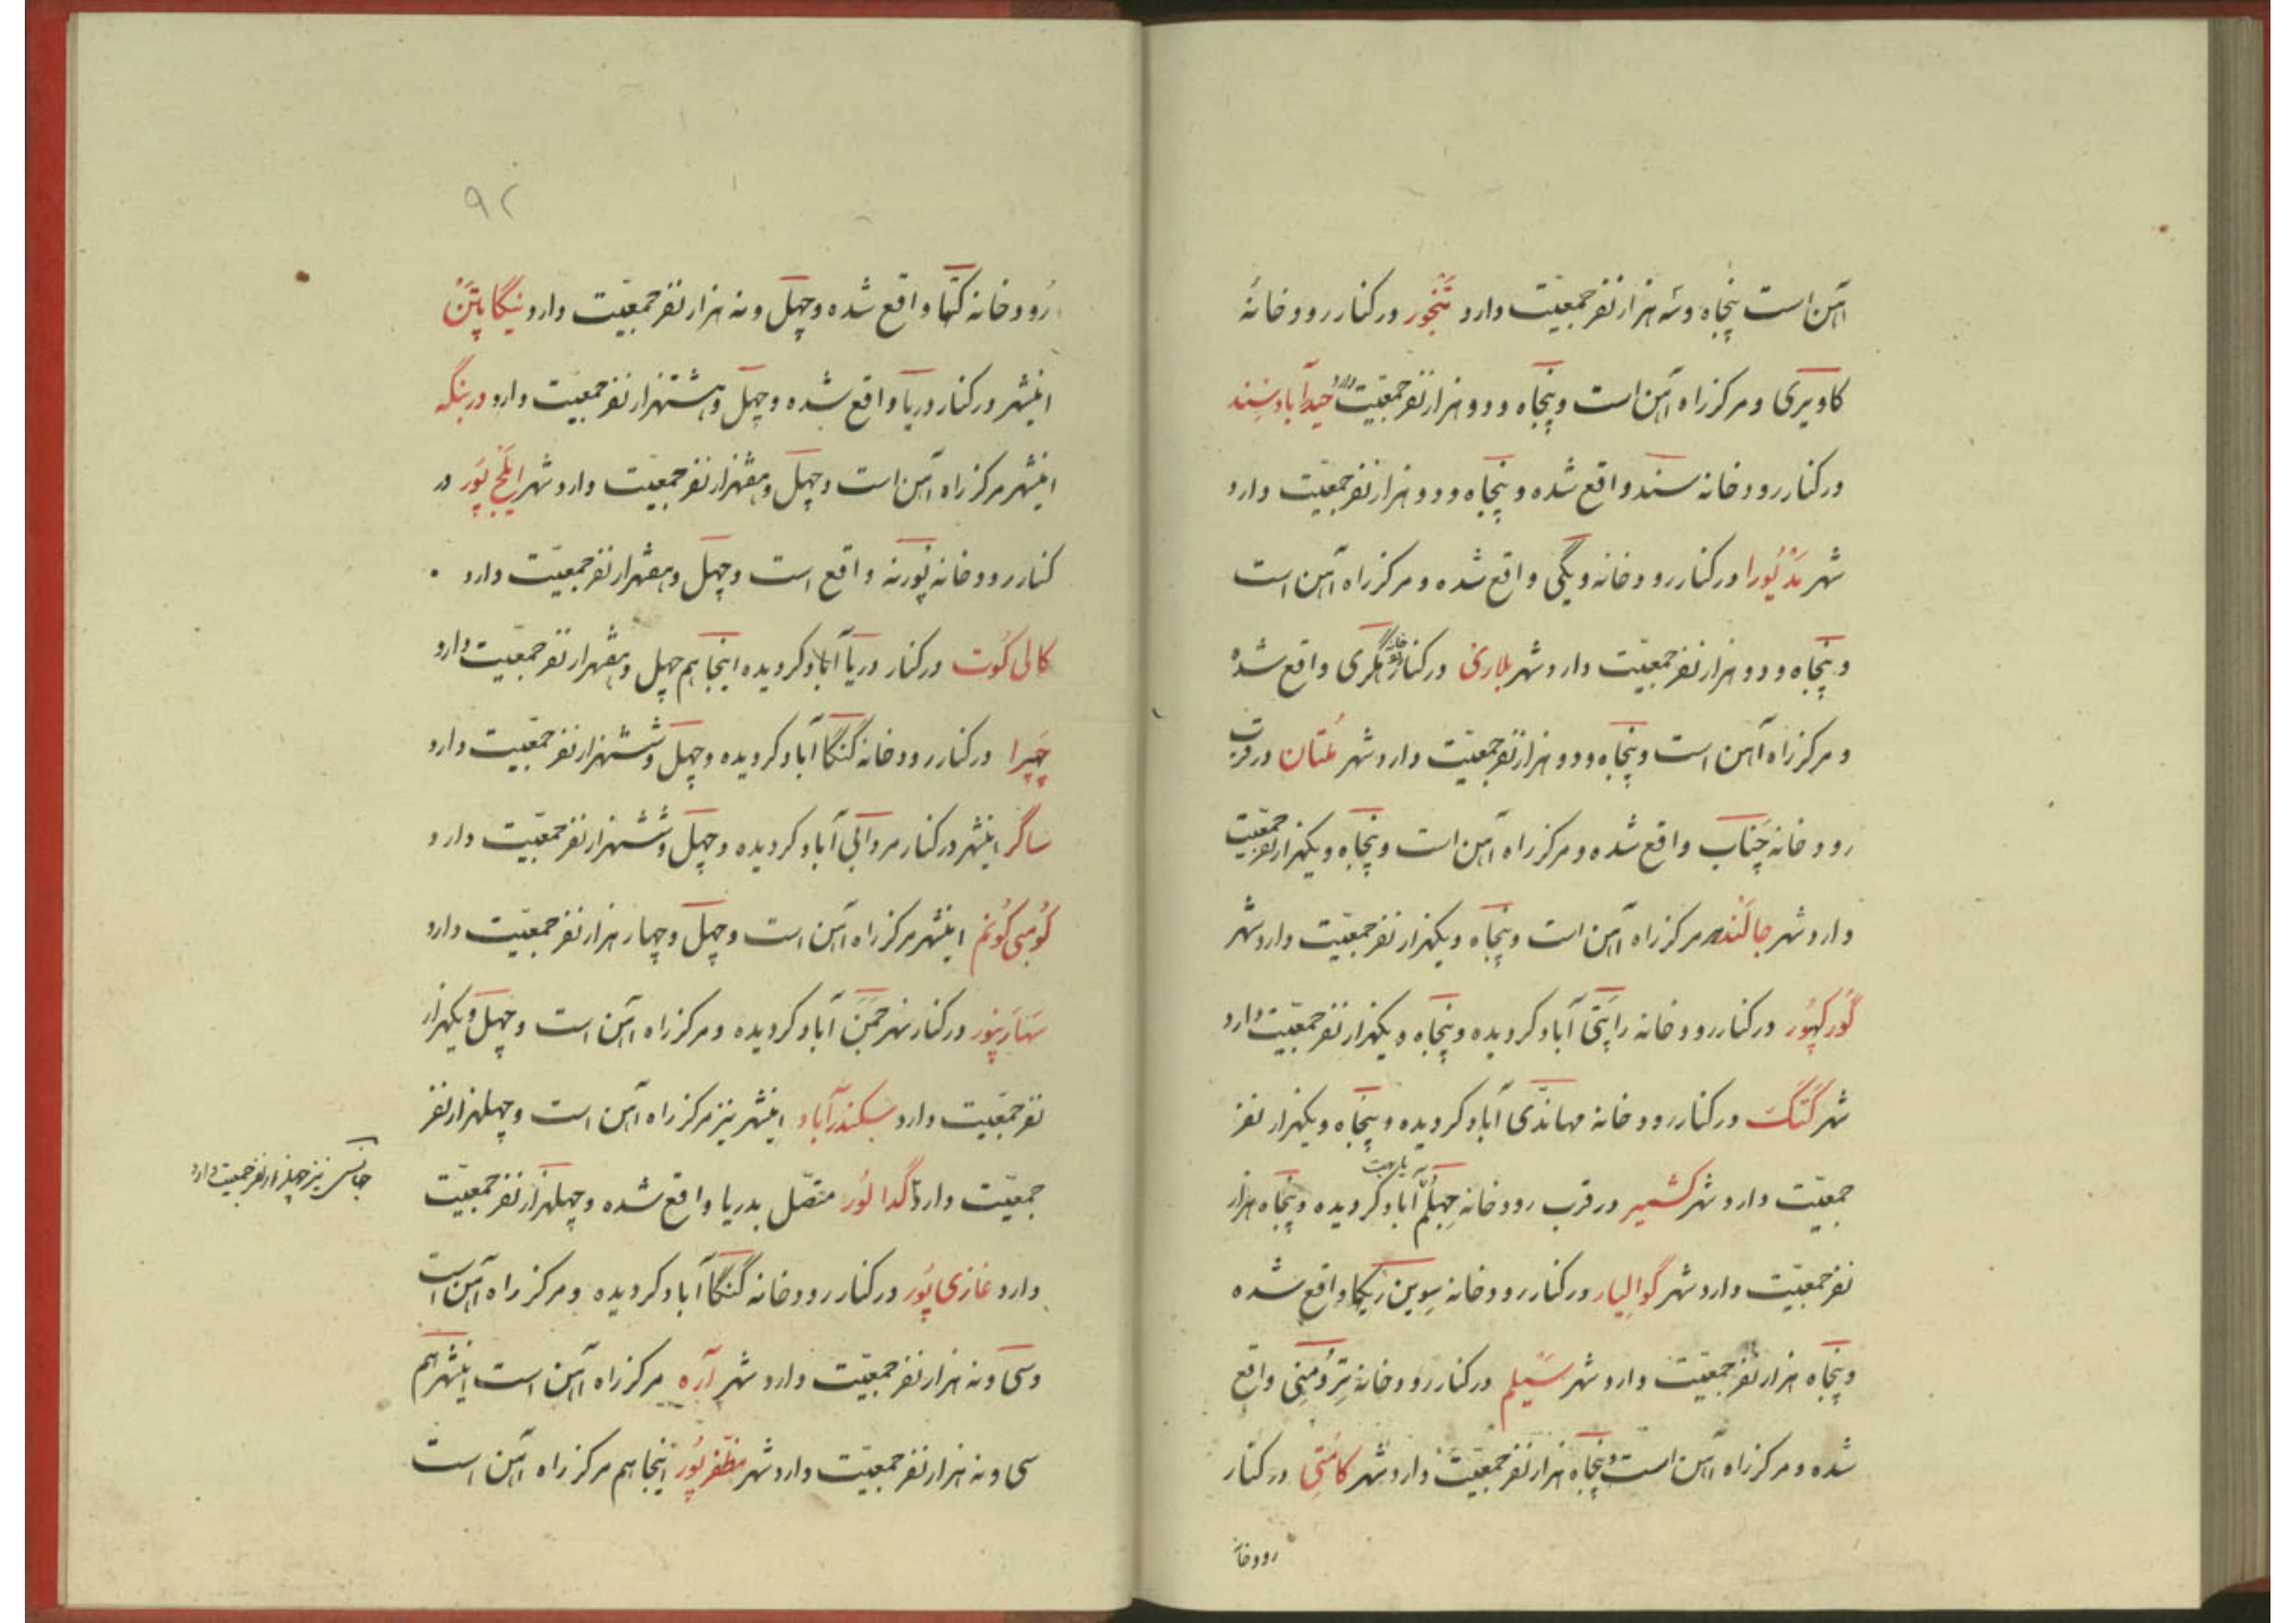 آهن است پنجاه و سه هزار نفر جمعیّت دارد تنجور در کنار رودخانهٔ
کاویری و مرکز راه آهن است و پنجاه و دو هزار نفر جمعیّت دارد حیدرآباد سند
در کنار رودخانه سند واقع شده و پنجاه و دو هزار نفر جمعیّت دارد
شهر مدیورا در کنار رودخانه ویگی واقع شده و مرکز راه آهن است
و پنجاه و دو هزار نفر جمعیّت دارد شهر بلاری در کنار رودخانه هگری واقع شده
و مرکز راه آهن است و پنجاه و دو هزار نفر جمعیّت دارد شهر مُلتان در قرب
رودخانه چناب واقع شده و مرکز راه آهن است و پنجاه و یکهزار نفر جمعیّت
دارد شهر جالَندر مرکز راه آهن است و پنجاه و یکهزار نفر جمعیّت دارد شهر
گورکهپُور در کنار رودخانه راپتی آباد گردیده و پنجاه و یکهزار نفر جمعیّت دارد
شهر کَتَک در کنار رودخانه مهاندّی آباد گردیده و پنجاه و یکهزار نفر
جمعیّت دارد شهر کشمیر در قرب رودخانه جهلُم آباد گردیده و پنجاه هزار
نفر جمعیّت دارد شهر گوالیار در کنار رودخانه سوین ریکا واقع شده
و پنجاه هزار نفر جمعیّت دارد شهر سَیلم در کنار رودخانه ترومنی واقع
شده و مرکز راه آهن است و پنجاه هزار نفر جمعیّت دارد شهر کامتی در کنار
رودخانه
۹۲
رُودخانه کنّها واقع شده و چهل و نه هزار نفر جمعیّت دارد نیگاپتَن
اینشهر در کنار دریا واقع شده و چهل و هشتهزار نفر جمعیّت دارد دربنگه
اینشهر مرکز راه آهن است و چهل و هفهزار نفر جمعیّت دارد شهر ایلَج پُور در
کنار رودخانه پُورنه واقع است و چهل و هفهزار نفر جمعیّت دارد
کالی کُوت در کنار دریا آباد گردیده اینجا هم چهل و هفهزار نفر جمعیّت دارد
چَهپرا در کنار رودخانه گنگا آباد گردیده و چهل و ششهزار نفر جمعیّت دارد
ساگر اینشهر در کنار مردابی آباد گردیده و چهل و ششهزار نفر جمعیّت دارد
کُومبی کُونَم اینشهر مرکز راه آهن است و چهل و چهار هزار نفر جمعیّت دارد
سَهارَنپور در کنار نهر جَمَن آباد گردیده و مرکز راه آهن است و چهل و یکهزار
نفر جمعیّت دارد سکندرآباد اینشهر نیز مرکز راه آهن است و چهلهزار نفر
جمعیّت دارد گدالُور متّصل بدریا واقع شده و چهلهزار نفر جمعیّت
جانسی نیز چهلهزار نفر جمعیت دارد
دارد غازی پُور در کنار رودخانه گنگا آباد گردیده و مرکز راه آهن است
و سی و نه هزار نفر جمعیّت دارد شهر آره مرکز راه آهن است اینشهر هم
سی و نه هزار نفر جمعیّت دارد شهر مظفّرپُور اینجا هم مرکز راه آهن است